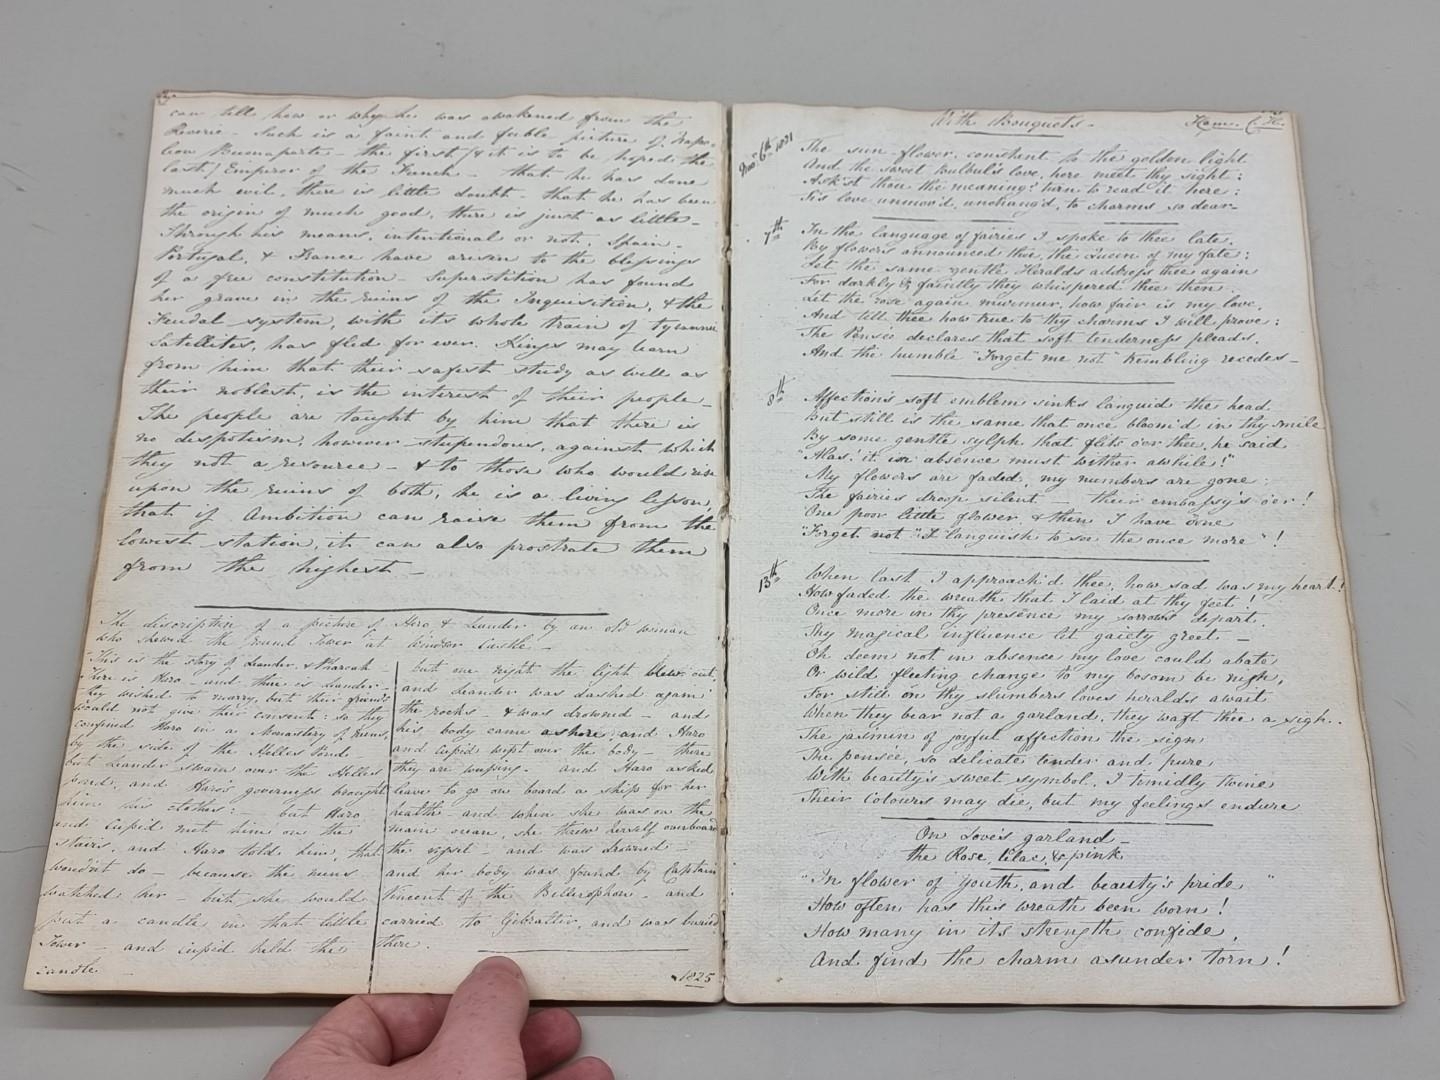 3.
can tell how or why he was awakened from the
Reverie - Such is a faint and feeble picture of Napo-
leon Buonaparte - the first (& it is to be hoped the
last) Emperor of the French - that he has done
much evil, there is little doubt - that he has been
the origin of much good, there is just as little -
Through his means, intentional or not, Spain -
Portugal, & France have arisen to the blessings
of a free constitution - Superstition has found
her grave in the ruins of the Inquisition, & the
Feudal system, with its whole train of tyrannic
Satellites, has fled for ever. Kings may learn
from him that their safest study as well as
their noblest, is the interest of their people -
The people are taught by him that there is
no despotism, however stupendous, against which
they not a resource - & to those who would rise
upon the ruins of both, he is a living lesson,
that if Ambition can raise them from the
lowest station, it can also prostrate them
from the highest -
The discription of a picture of Hero & Leander by an old woman
who shewed the round Tower at Windsor Castle -
This is the story of Leander, &
Here is Hero - and there is Leander -
they wished to marry, but their friends
would not give their consent: so they
confined Hero in a Monastery of nuns,
by the side of the Helles Pond
but Leander swam over the Helles
pond, and Hero's governess brought
him his clothes: - but Hero
and Cupid met him on the
stairs, and Hero told him, that
wouldn't do - because the nuns
watched her - but she would
put a candle in that little
Tower - and cupid held the
candle -
but one night the light blew out,
and Leander was dashed again
the rocks - & was drowned - and
his body came ashore and Hero
and Cupid wept over the body - there
they are weeping - and Hero asked
leave to go on board a ship for her
health - and when she was on the
main ocean, she threw herself overboard
the vessel - and was drowned -
and her body was found by Captain
Vincent of the Bellerophon - and
carried to Gibralter, and was buried
there.
1825
With Bouquets -
Nov: 6th 1821
The sun-flower, constant to the golden light
And the sweet bulbul's love, here meet thy sight:
Ask'st thou the meaning? turn to read it here:
Tis love unmov'd, unchang'd, to charms so dear -
7th
In the language of fairies I spoke to thee late,
By flowers announced thee, the Queen of my fate:
Let the same gentle Heralds address thee again
For darkly & faintly they whispered thee then.
Let the rose again murmur, how fair is my love,
And tell thee how true to thy charms I will prove:
The Pensée declares that soft tenderness pleads,
And the humble "Forget me not" trembling recedes -
8th
Affection's soft emblem sinks languid the head
But still is the same that once bloom'd in thy smile
By some gentle sylph that flits o'er thee, he said
"Alas! it in absence must wither awhile!"
My flowers are faded, my numbers are gone:
The fairies droop silent - their embassy's o'er!
One poor little flower, & then I have done
"Forget not" "I languish to see thee once more"!
13th
When last I approach'd thee, how sad was my heart!
How faded the wreath that I laid at thy feet!
Once more in thy presence my sorrows depart.
Thy magical influence let gaiety greet. -
Oh deem not in absence my love could abate
Or wild fleeting change to my bosom be nigh,
For still on thy slumbers love's heralds await
When they bear not a garland, they waft thee a sigh..
The jasmin of joyful affection the sign
The pensée, so delicate tender and pure,
With beauty's sweet symbol, I timidly twine
Their Colours may die, but my feelings endure
On Love's garland -
the Rose, lilac, & pink
"In flower of youth, and beauty's pride "
How often has this wreath been worn!
How many in its strength confide,
And find the charm asunder torn!